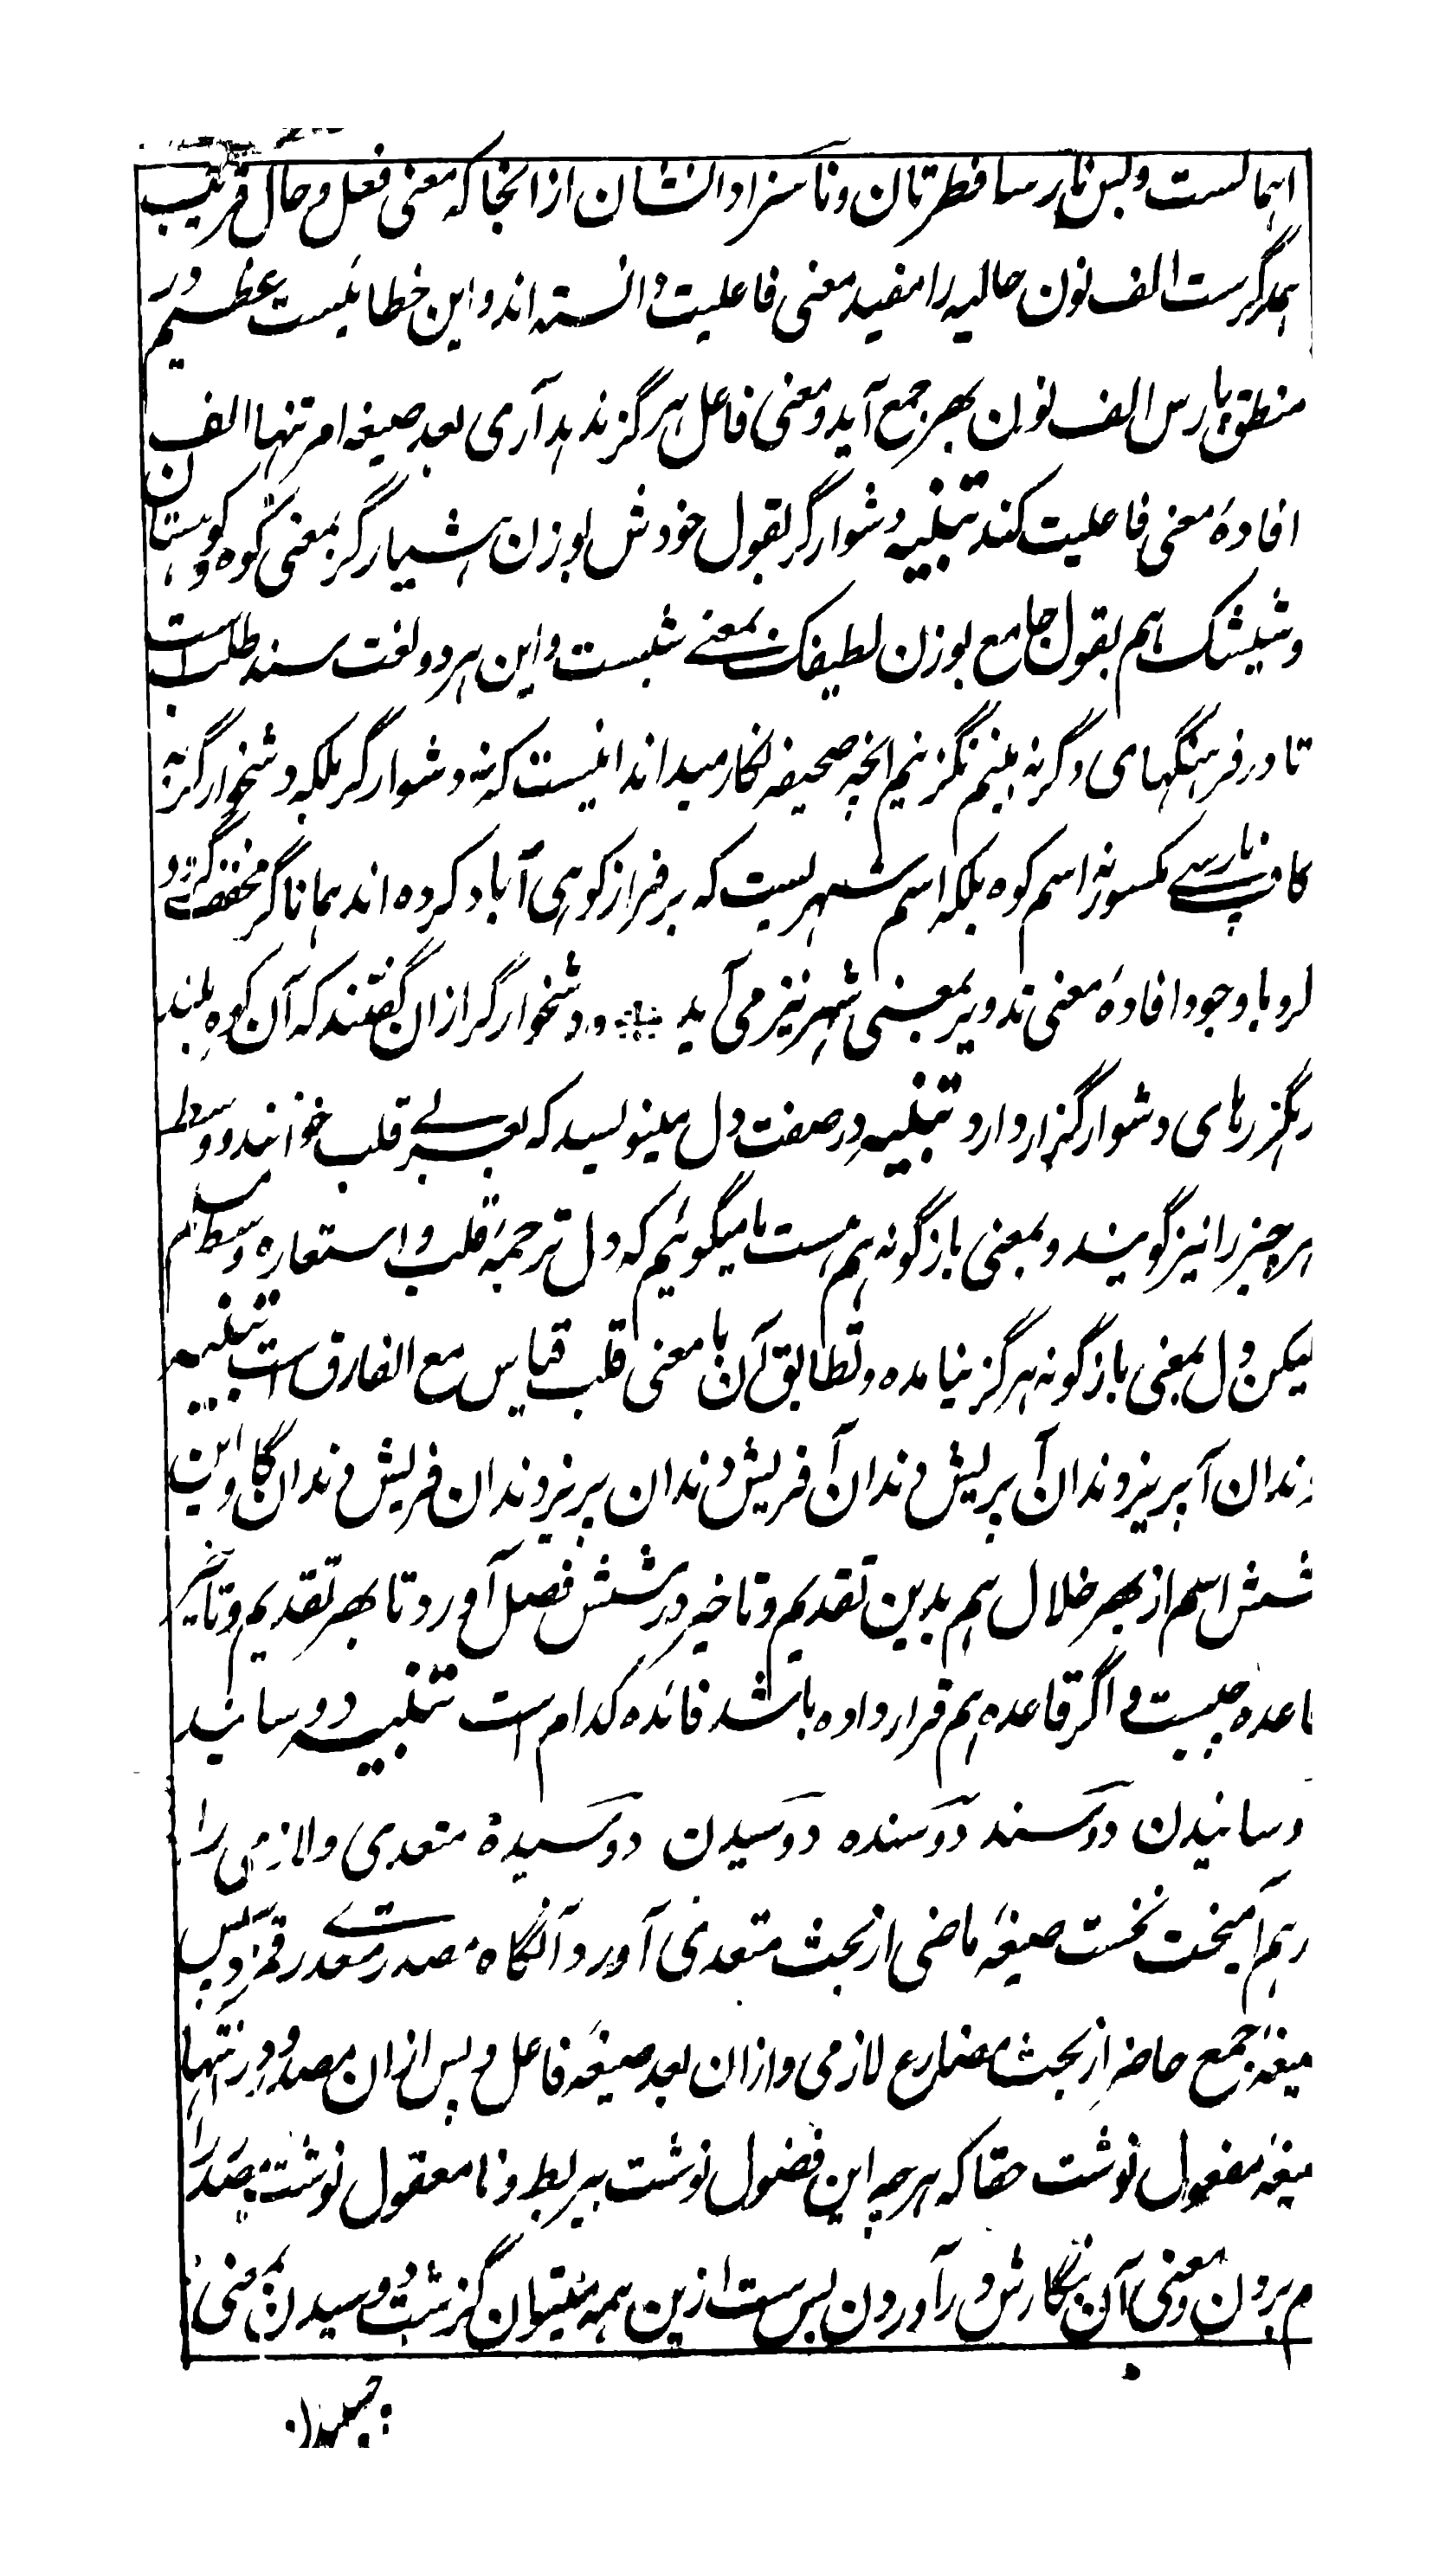 اہمالست و بس نارسا فطرتان و ناسزادانشان از انجا کہ معنی فعل و حال قریب
ہمدگرست الف نون حالیہ را مفید معنی فاعلیت دانستہ اند و این خطائیست عظیم در
منطق پارس الف نون بہر جمع آید و معنی فاعل ہرگز ندہد آری بعد صیغہ امر تنہا الف
افادۂ معنی فاعلیت کند تنبیہ دشوارگر بقول خودش بوزن ہشیار گر بمعنی کوہ و کوہستان
و شیشک ہم بقول جامع بوزن لطیفک بمعنے شبست و این ہر دو لغت سند طلب است
تا در فرہنگہای دگر نہ بینم نگزینم انچہ صحیفہ نگار میداند اینست کہ نہ دشوارگر بلکہ دشخوارگر بہ
کاف پارسے مکسور نہ اسم کوہ بلکہ اسم شہریست کہ بر فراز کوہی آباد کردہ اند ہمانا گر مخفف گرد
گرد با وجود افادۂ معنی تدویر بمعنی شہر نیز می آید و دشخوارگر ازان گفتند کہ آن کوہِ بلند
رہگزرہای دشوار گزار دارد تنبیہ در صفت دل مینویسد کہ بعربے قلب خوانند و وسط
ہر چیز را نیز گویند و بمعنی بازگونہ ہم ہست ما میگوئیم کہ دل ترجمۂ قلب و استعارہ وسط مسلم
لیکن دل بمعنی بازگونہ ہرگز نیامدہ و تطابق آن با معنی قلب قیاس مع الفارق است تنبیہ
دندان آپریز دندان آپریش دندان آفریش دندان پریز دندان فریش دندان کاو این
شش اسم از بہر خلال ہم بدین تقدیم و تاخیر در شش فصل آورد تا بہر تقدیم و تاخیر
قاعدہ چیست و اگر قاعدہ ہم قرار دادہ باشد فائدہ کدام است تنبیہ دوسانید
دوسانیدن دوسند دوسندہ دوسیدن دوسیدہ متعدی و لازمی را
بہم آمیخت نخست صیغۂ ماضی از بحث متعدی آورد آنگاہ مصدر متعدی رقم زد پس
صیغۂ جمع حاضر از بحث مضارع لازمی و ازان بعد صیغۂ فاعل و پس ازان مصدر و در انتہا
صیغۂ مفعول نوشت حقا کہ ہر چہ این فضول نوشت بیربط و نامعقول نوشت مصدر را
نام بردن و معنی آن بنگارش در آوردن بس ست ازین ہمہ میتوان گزشت دوسیدن بمعنی
چسپیدن